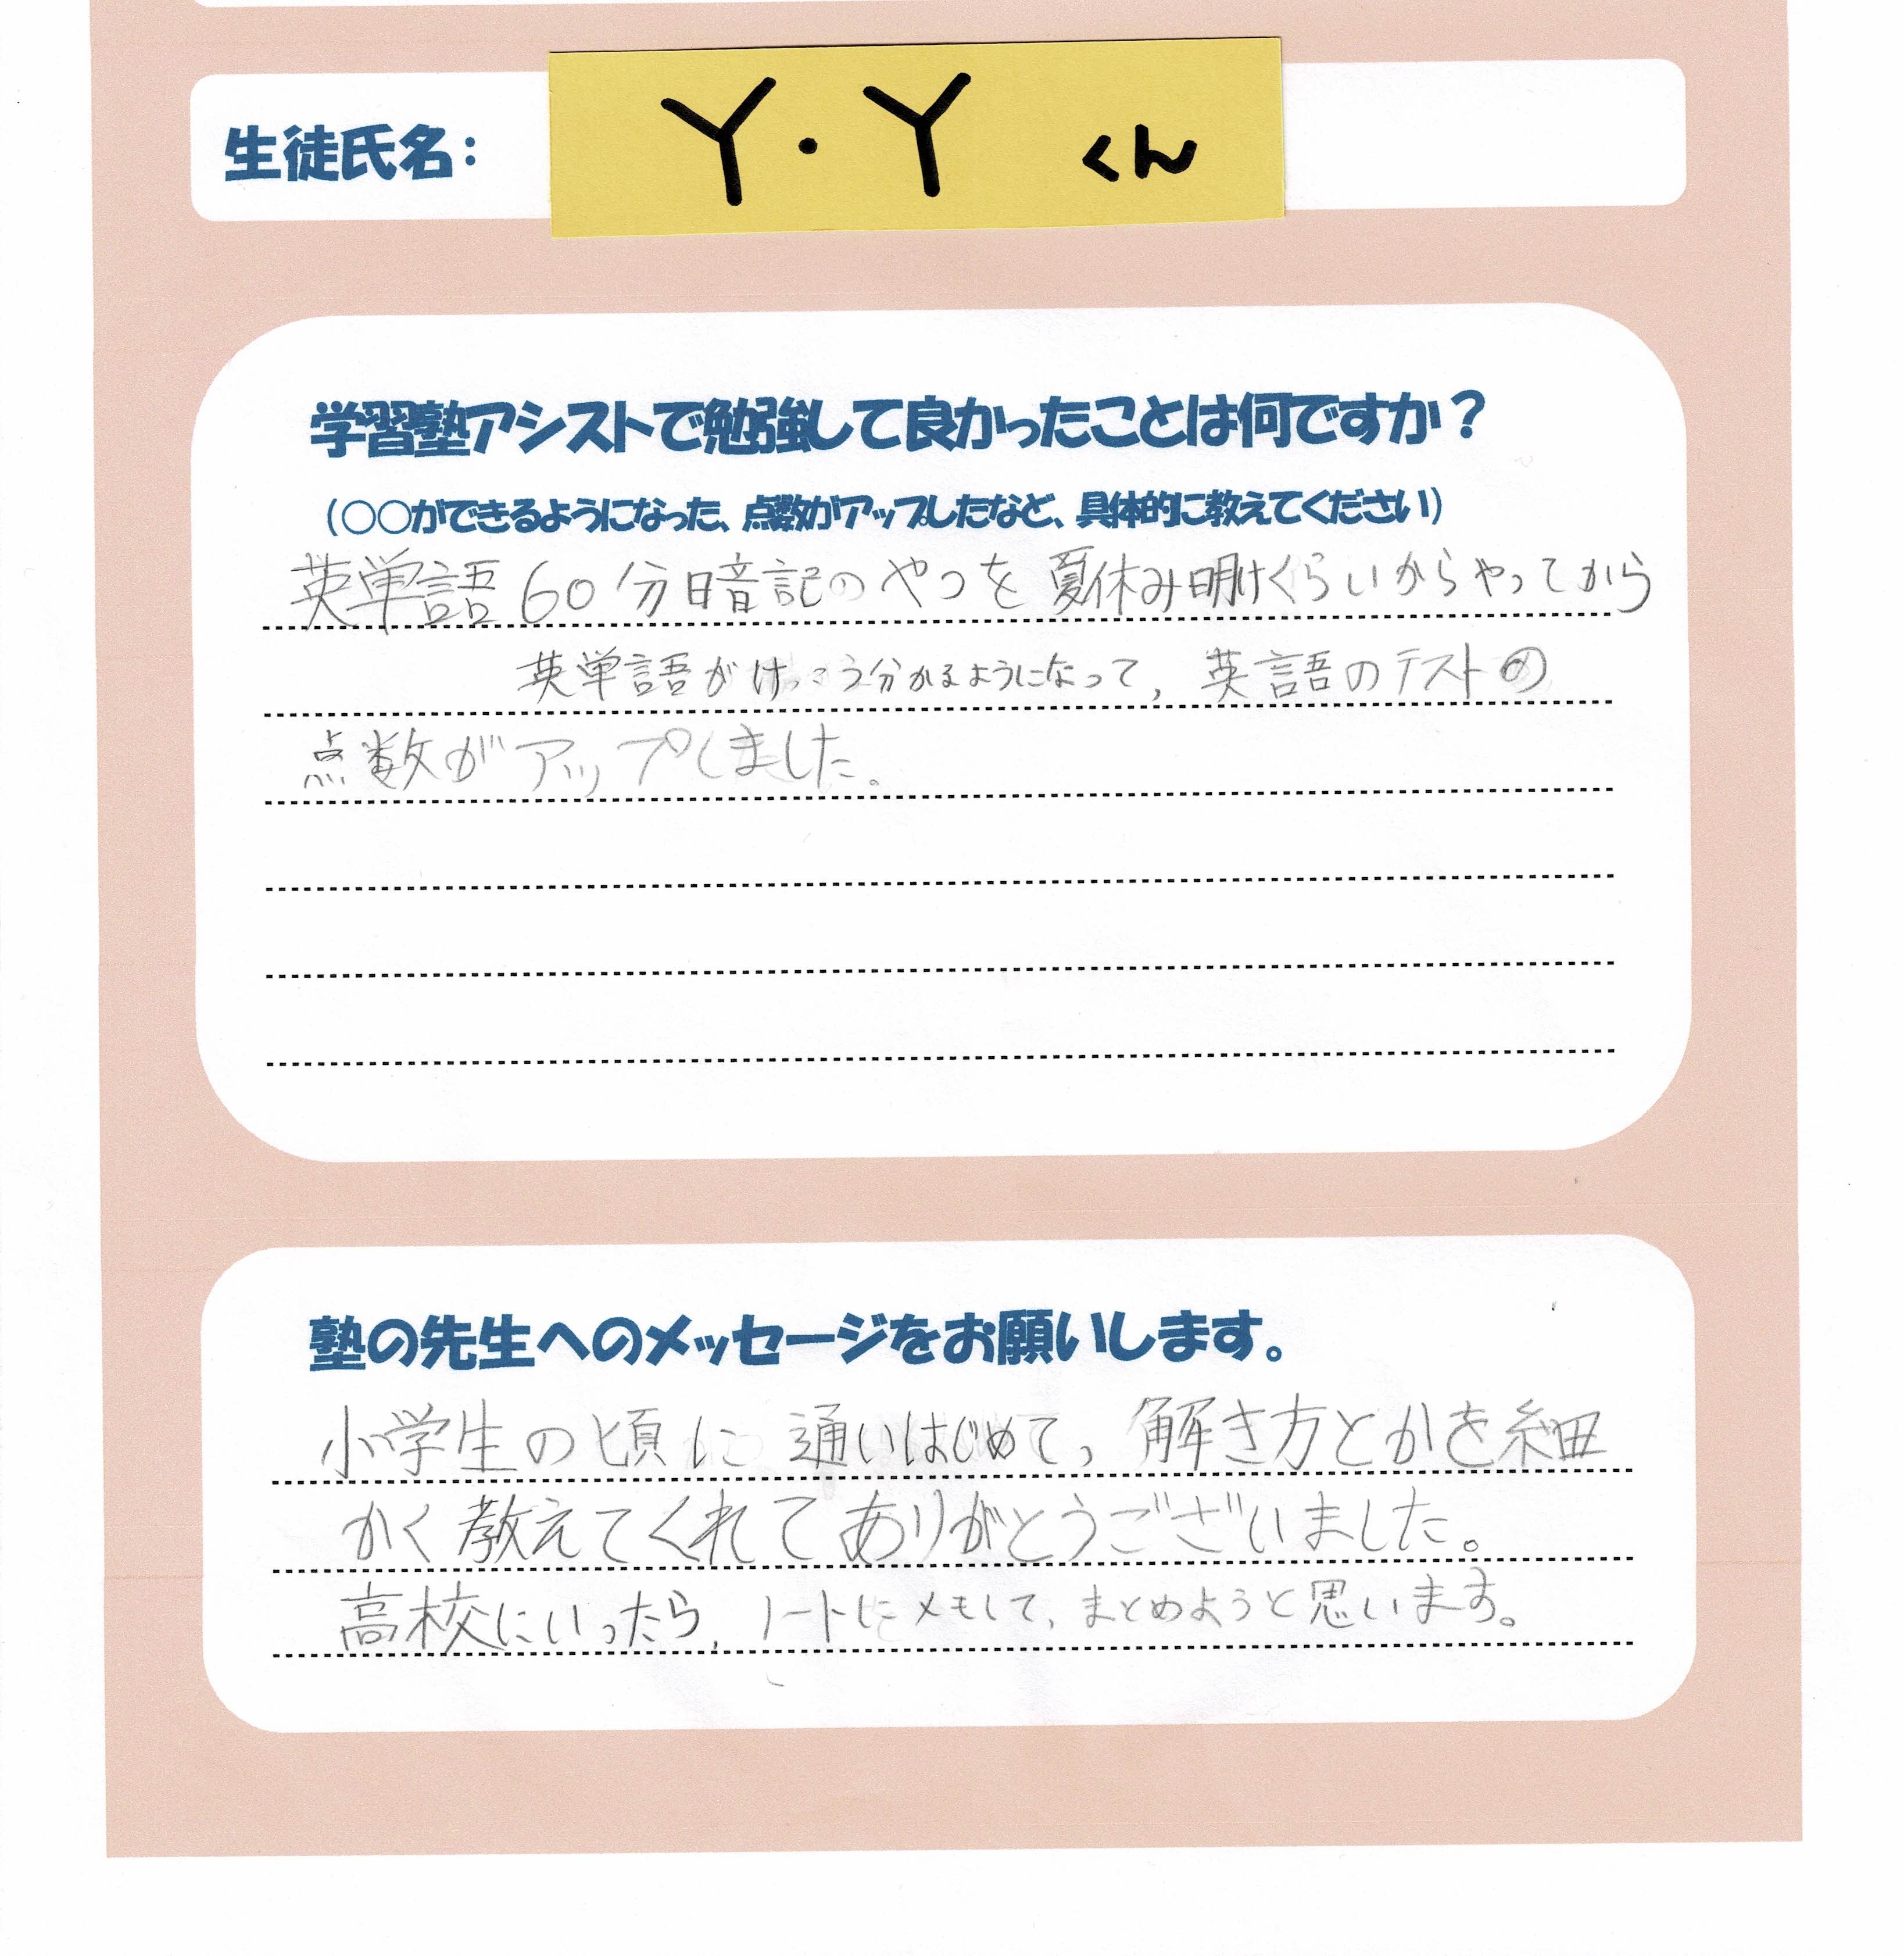 生徒氏名：
Y・Y くん
学習塾アシストで勉強して良かったことは何ですか？
（○○ができるようになった、点数がアップしたなど、具体的に教えてください）
英単語60分暗記のやつを夏休み明けくらいからやってから
英単語がけっこう分かるようになって、英語のテストの
点数がアップしました。
塾の先生へのメッセージをお願いします。
小学生の頃に通いはじめて、解き方とかを細
かく教えてくれてありがとうございました。
高校にいったら、ノートにメモして、まとめようと思います。